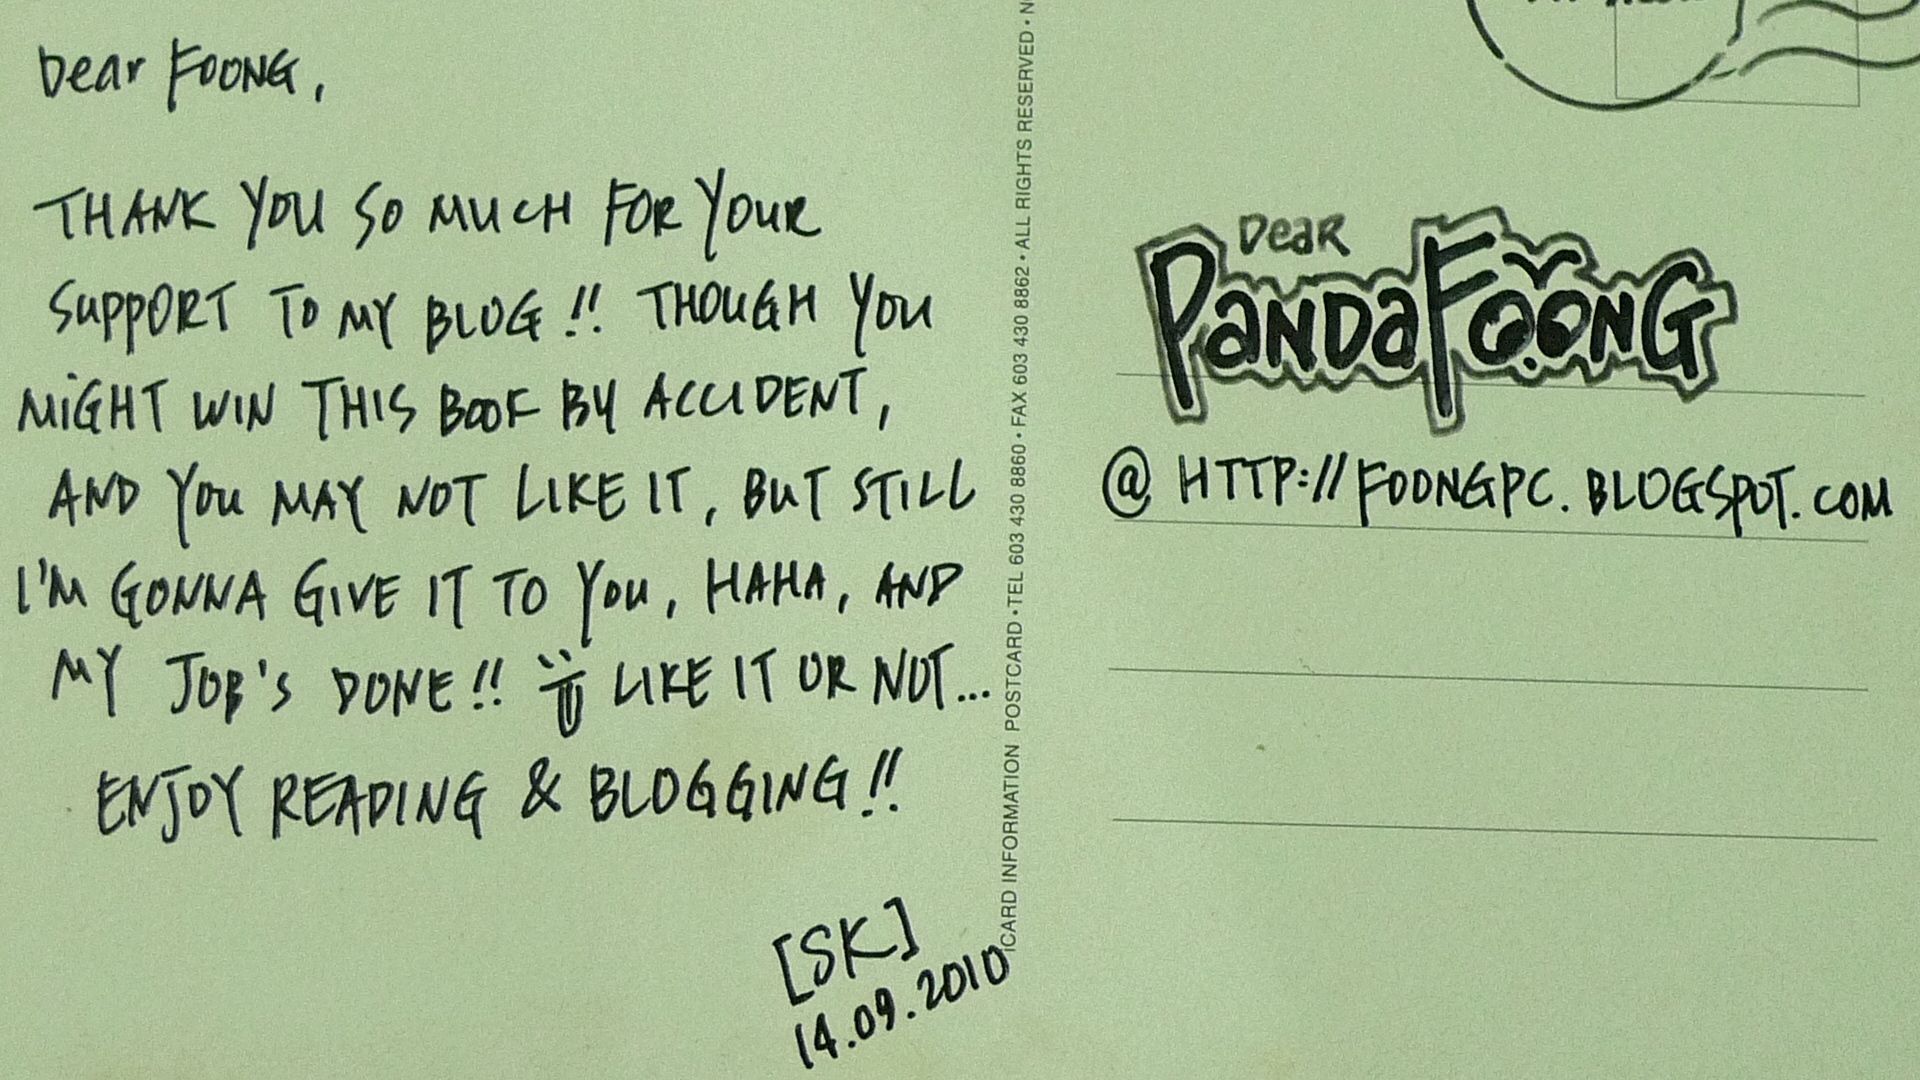 Dear FOONG,
THANK YOU SO MUCH FOR YOUR
SUPPORT TO MY BLOG!! THOUGH YOU
MIGHT WIN THIS BOOK BY ACCIDENT,
AND YOU MAY NOT LIKE IT, BUT STILL
I'M GONNA GIVE IT TO YOU, HAHA, AND
MY JOB'S DONE!! LIKE IT OR NOT...
ENJOY READING & BLOGGING!!
[SK]
14.09.2010
ICARD INFORMATION POSTCARD • TEL 603 430 8860 • FAX 603 430 8862 • ALL RIGHTS RESERVED •
Dear
PandaFoong
@ HTTP://FOONGPC.BLOGSPOT.COM